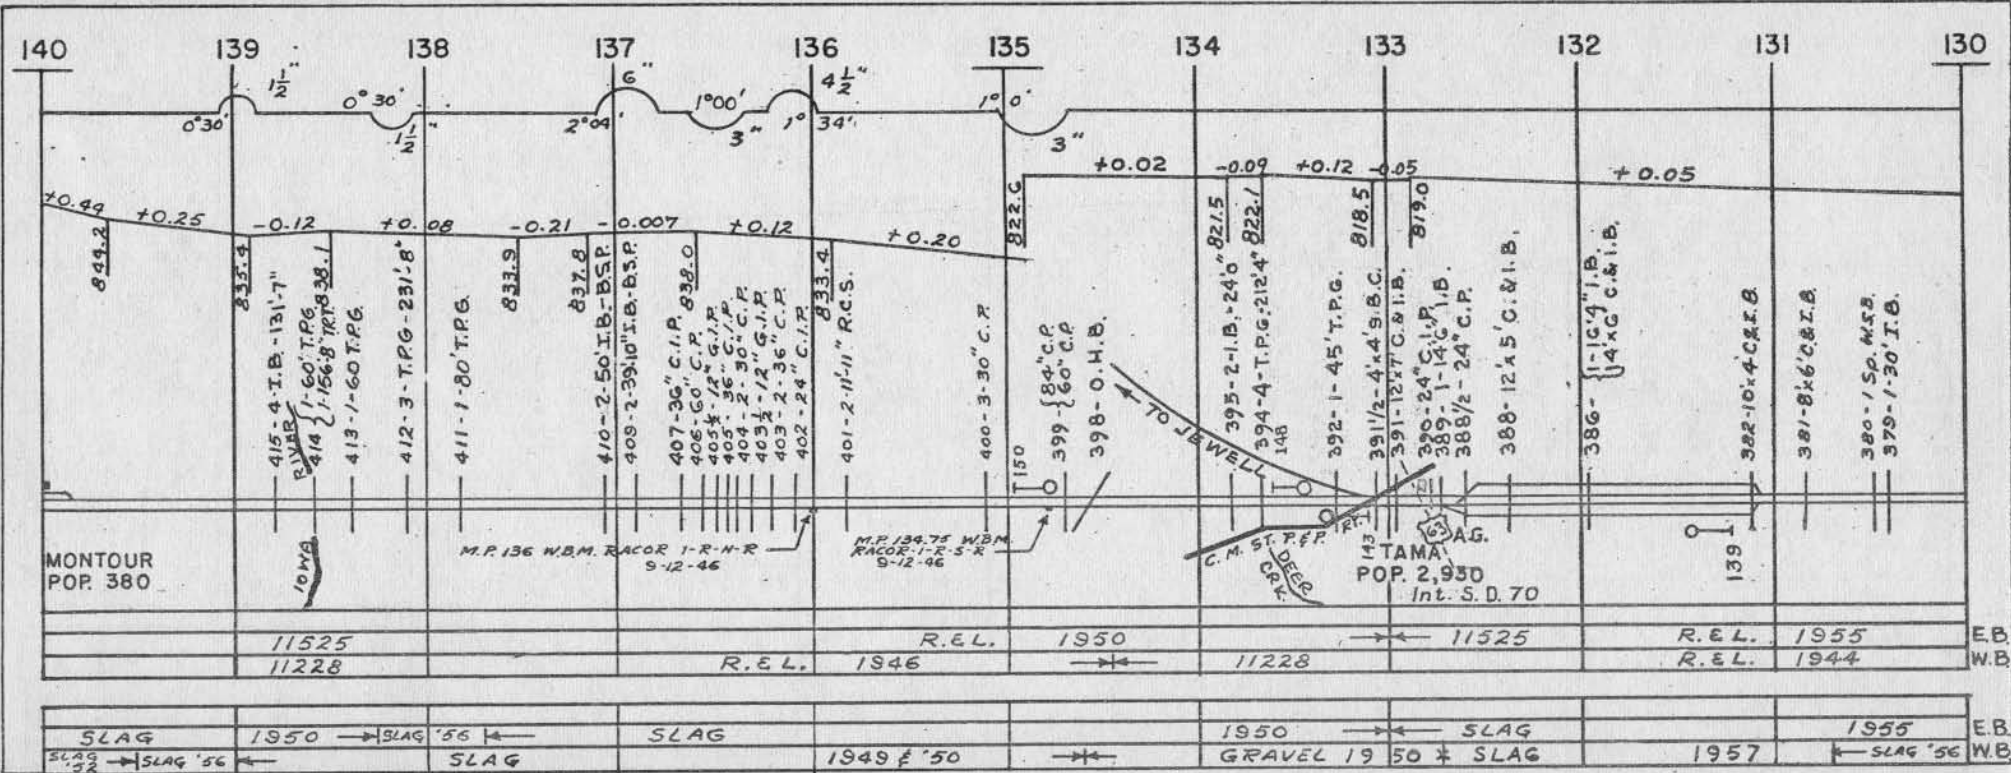 140 139 138 137 136 135 134 133 132 131 130
1½" 6" 4½"
0°30' 1°00' 1°0'
0°30' 1½" 2°04' 3" 1°34' 3"
+0.02 -0.09 +0.12 -0.05 +0.05
+0.44 +0.25 -0.12 +0.08 -0.21 -0.007 +0.12 +0.20
844.2
835.4
838.1
833.9
837.8
838.0
833.4
822.6
821.5
822.1
818.5
819.0
415-4-I.B.-131'-7"
414 {1-60' T.P.G.
{1-156'-8" TRT
413-1-60 T.P.G.
412-3-T.P.G-231'-8"
411-1-80' T.P.G.
410-2-50' I.B.-B.S.P.
409-2-39'10" I.B.-B.S.P.
407-36" C.I.P.
406-60" C.P.
405½-12" G.I.P.
405-36" C.I.P.
404-2-30" C.P.
403½-12" G.I.P.
403-2-36" C.P.
402-24" C.I.P.
401-2-11'-11" R.C.S.
400-3-30" C.P.
399-{84" C.P.
{60" C.P.
398-O.H.B.
395-2-I.B.-24'0"
394-4-T.P.G-212'4"
392-1-45' T.P.G.
391 1/2-4'x4' S.B.C.
391-12'x7' C.&I.B.
390-24" C.I.P.
389-1-14'6" I.B.
388 1/2-24" C.P.
388-12'x5' C.&I.B.
386-{1-16'4" I.B.
{14'x6' C.&I.B.
382-10'x4' C.&I.B.
381-8'x6' C.&I.B.
380-1 Sp. W.S.B.
379-1-30' I.B.
TO JEWELL
RIVER
IOWA
150
148
143
139
63
A.G.
MONTOUR
POP. 380
M.P. 136 W.B.M. RACOR 1-R-H-R
9-12-46
M.P. 134.75 W.B.M.
RACOR-1-R-S-R
9-12-46
C. M. ST. P. & P.
DEER
CRK.
TAMA
POP. 2,930
Int. S.D. 70
11525 R.E.L. 1950 11525 R.&L. 1955 E.B.
11228 R.&L. 1946 11228 R.&L. 1944 W.B.
SLAG 1950 SLAG '56 SLAG 1950 SLAG 1955 E.B.
SLAG '52 SLAG '56 SLAG 1949 & '50 GRAVEL 1950 SLAG 1957 SLAG '56 W.B.